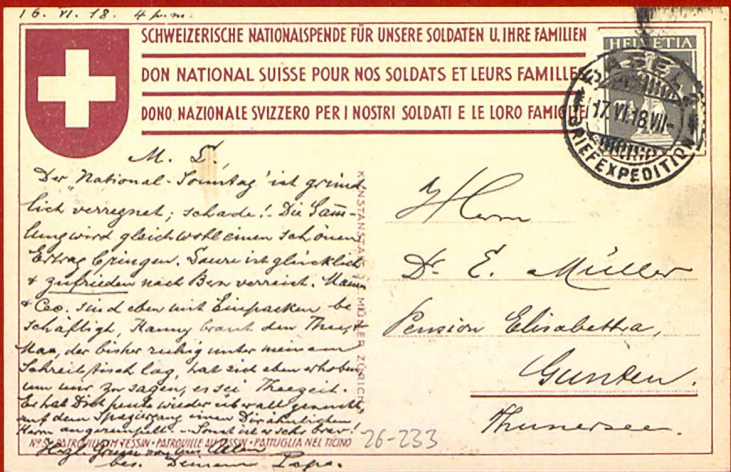 16. VI. 18. 4 p.m.
SCHWEIZERISCHE NATIONALSPENDE FÜR UNSERE SOLDATEN U. IHRE FAMILIEN
DON NATIONAL SUISSE POUR NOS SOLDATS ET LEURS FAMILLE
DONO NAZIONALE SVIZZERO PER I NOSTRI SOLDATI E LE LORO FAMIGLIE
HELVETIA
BASEL
17.VI.18.VII-
BRIEFEXPEDITION
M. L.
Der "National-Sonntag" ist gründ-
lich verregnet; schade! - Die Samm-
lung wird gleichwohl einen schönen
Ertrag bringen. ist glücklich
+ zufrieden nach Bern verreist. Mama
+ sind eben mit Einpacken be-
schäftigt, Hanny braut den Thee, +
der bisher ruhig unter meinem
Schreibtisch lag, hat sich eben erhoben
um mir zu sagen, es sei Theezeit.
Er hat Dich heute wieder überall gesucht,
auf dem Spaziergang einen Dir ähnlichen
Herrn - Sonst ist er sehr brav!
Herzl. Grüsse von uns Allen
bes. Deinem Papa.
Herrn
Dr. E. Müller
Pension Elisabetha,
Gunten.
Thunersee.
MÜLLER ZÜRICH
PATROUILLE IM TESSIN • PATROUILLE AU TESSIN • PATTUGLIA NEL TICINO
26-233